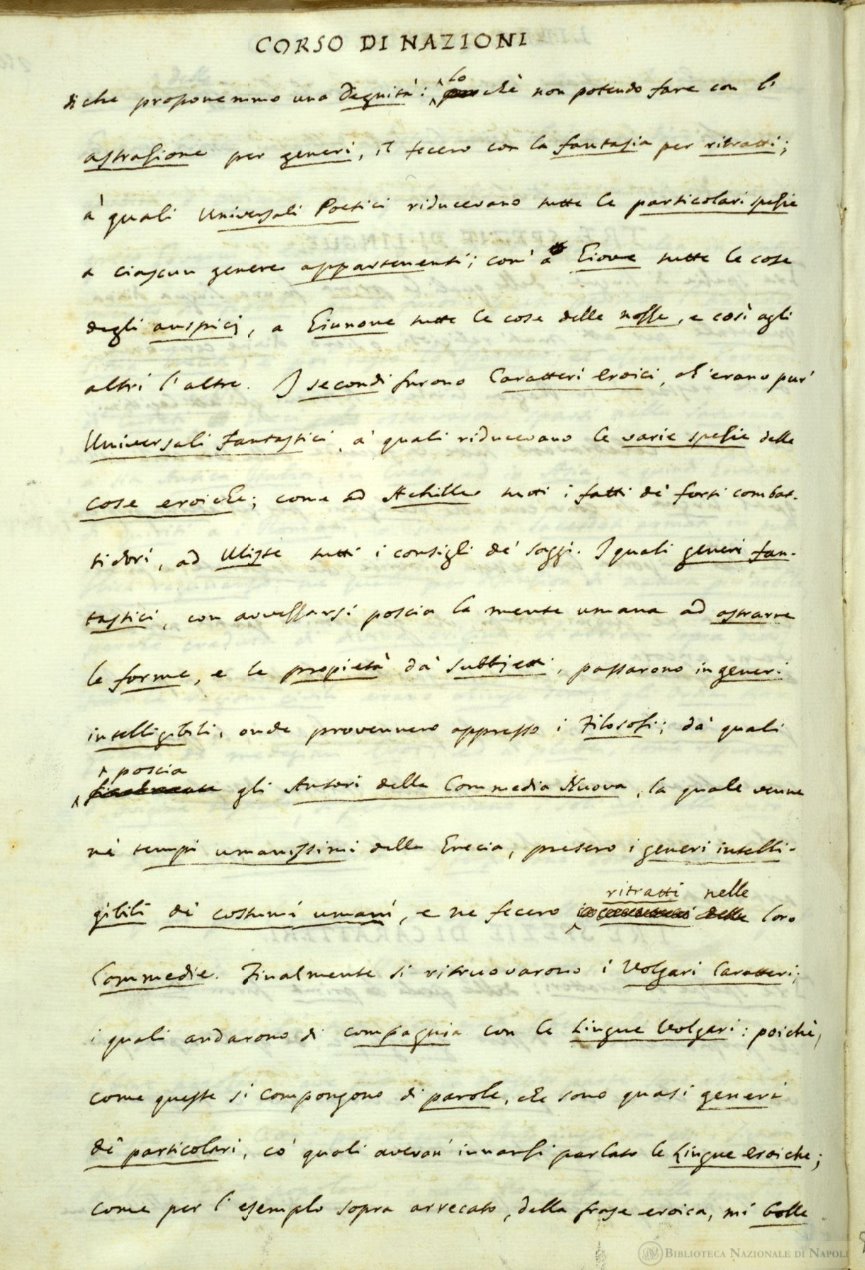 CORSO DI NAZIONI
di che proponemmo una Degnità: lo che non potendo fare con l'
astrazione per generi, il fecero con la fantasia per ritratti;
a' quali Universali Poetici riducevano tutte le particolari spezie
a ciascun genere appartenenti; com' a Giove tutte le cose
degli auspicj, a Giunone tutte le cose delle nozze, e così agli
altri l'altre. I secondi furono Caratteri Eroici, ch'erano pur'
Universali Fantastici, a' quali riducevano le varie spezie delle
cose eroiche; come ad Achille tutti i fatti de' forti combat-
tidori, ad Ulisse tutti i consigli de' saggi. I quali generi fan-
tastici, con avvezzarsi poscia la mente umana ad astrarre
le forme, e le propietà da' subbjetti, passarono in generi
intelligibili, onde provennero appresso i Filosofi; da' quali
poscia gli Autori della Commedia Nuova, la quale venne
ne' tempi umanissimi della Grecia, presero i generi intelli-
gibili de' costumi umani, e ne fecero ritratti nelle loro
Commedie. Finalmente si ritruovarono i Volgari Caratteri;
i quali andarono di compagnia con le Lingue Volgari: poichè,
come queste si compongono di parole, che sono quasi generi
de' particolari, co' quali avevan' innanzi parlato le Lingue Eroiche;
come per l'esemplo sopra arrecato, della frase eroica, mi bolle
BIBLIOTECA NAZIONALE DI NAPOLI